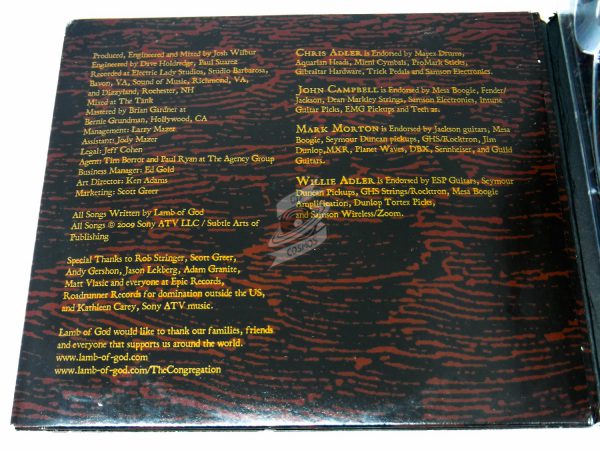 Produced, Engineered and Mixed by Josh Wilbur
Engineered by Dave Holdredge, Paul Suarez
Recorded at Electric Lady Studios, Studio Barbarosa,
Bavon, VA, Sound of Music, Richmond, VA,
and Dizzyland, Rochester, NH
Mixed at The Tank
Mastered by Brian Gardner at
Bernie Grundman, Hollywood, CA
Management: Larry Mazer
Assistant: Jody Mazer
Legal: Jeff Cohen
Agent: Tim Borror and Paul Ryan at The Agency Group
Business Manager: Ed Gold
Art Director: Ken Adams
Marketing: Scott Greer
All Songs Written by Lamb of God
All Songs © 2009 Sony ATV LLC / Subtle Arts of
Publishing
Special Thanks to Rob Stringer, Scott Greer,
Andy Gershon, Jason Lekberg, Adam Granite,
Matt Vlasic and everyone at Epic Records,
Roadrunner Records for domination outside the US,
and Kathleen Carey, Sony ATV music.
Lamb of God would like to thank our families, friends
and everyone that supports us around the world.
www.lamb-of-god.com
www.lamb-of-god.com/TheCongregation
Chris Adler is Endorsed by Mapex Drums,
Aquarian Heads, Meinl Cymbals, ProMark Sticks,
Gibraltar Hardware, Trick Pedals and Samson Electronics.
John Campbell is Endorsed by Mesa Boogie, Fender/
Jackson, Dean Markley Strings, Samson Electronics, Intune
Guitar Picks, EMG Pickups and Tech 21.
Mark Morton is Endorsed by Jackson guitars, Mesa
Boogie, Seymour Duncan pickups, GHS/Rocktron, Jim
Dunlop,MXR, Planet Waves, DBX, Sennheiser, and Guild
Guitars.
Willie Adler is Endorsed by ESP Guitars, Seymour
Duncan Pickups, GHS Strings/Rocktron, Mesa Boogie
Amplification, Dunlop Tortex Picks,
and Samson Wireless/Zoom.
COSMOS